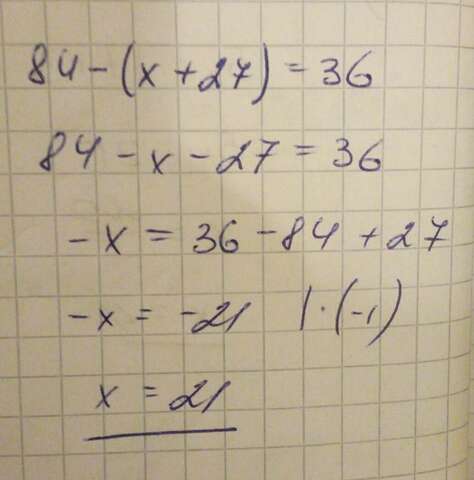 84 - (x + 27) = 36
84 - x - 27 = 36
-x = 36 - 84 + 27
-x = -21 | · (-1)
x = 21